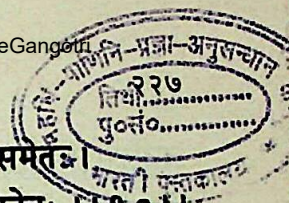 eGangotri
महर्षि-पाणिनि-प्रज्ञा-अनुसन्धान
२२७
तिथी..............
पु०सं०..............
समेतः।
भारती पुस्तकालय *